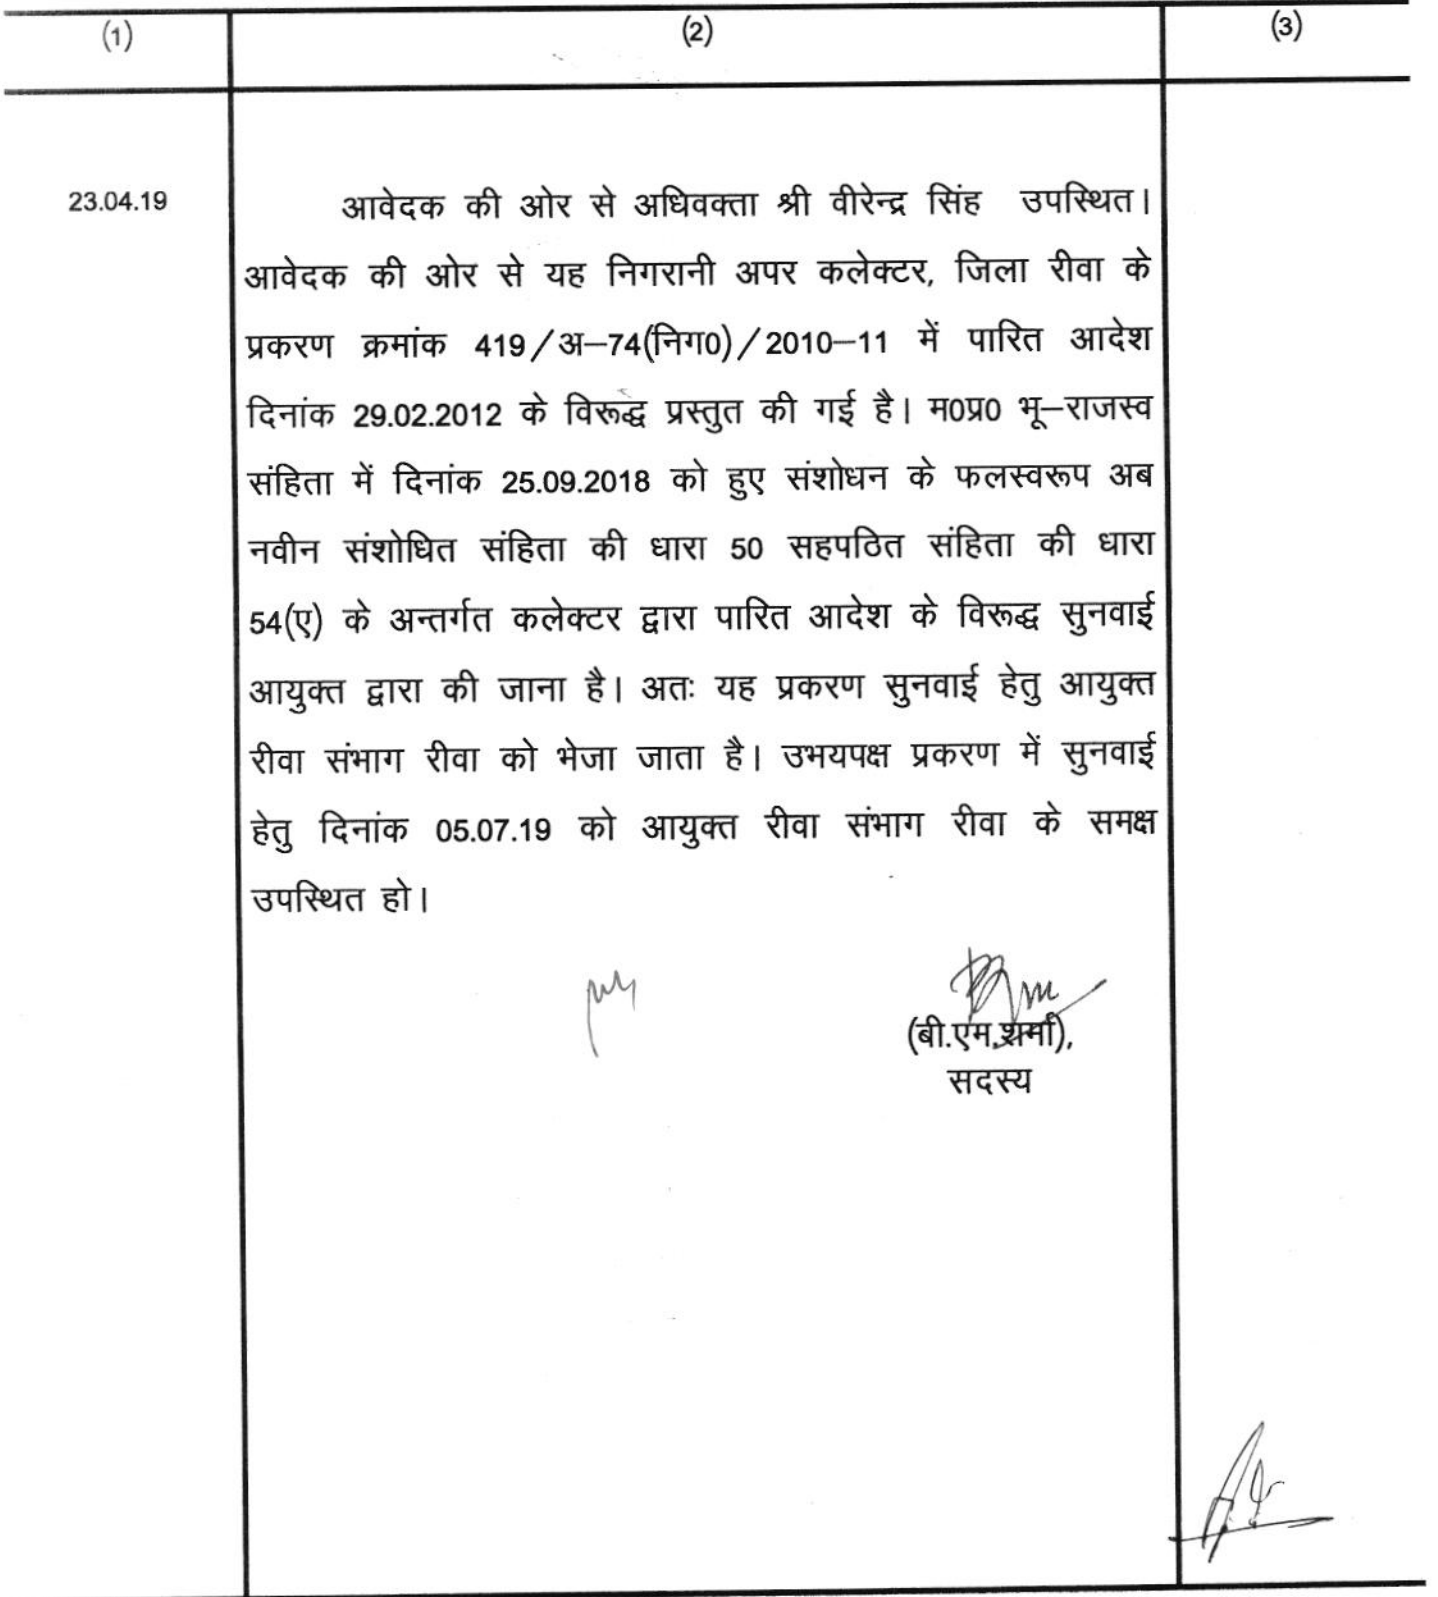 (1) (2) (3)
23.04.19 आवेदक की ओर से अधिवक्ता श्री वीरेन्द्र सिंह उपस्थित।
आवेदक की ओर से यह निगरानी अपर कलेक्टर, जिला रीवा के
प्रकरण क्रमांक 419/अ–74(निग0)/2010–11 में पारित आदेश
दिनांक 29.02.2012 के विरूद्ध प्रस्तुत की गई है। म0प्र0 भू–राजस्व
संहिता में दिनांक 25.09.2018 को हुए संशोधन के फलस्वरूप अब
नवीन संशोधित संहिता की धारा 50 सहपठित संहिता की धारा
54(ए) के अन्तर्गत कलेक्टर द्वारा पारित आदेश के विरूद्ध सुनवाई
आयुक्त द्वारा की जाना है। अतः यह प्रकरण सुनवाई हेतु आयुक्त
रीवा संभाग रीवा को भेजा जाता है। उभयपक्ष प्रकरण में सुनवाई
हेतु दिनांक 05.07.19 को आयुक्त रीवा संभाग रीवा के समक्ष
उपस्थित हो।
(बी.एम.शर्मा),
सदस्य